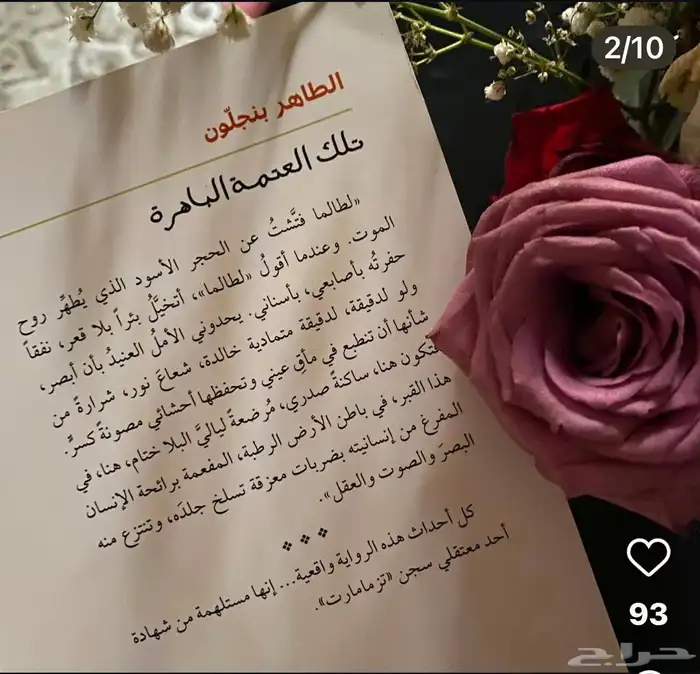 2/10
الطاهر بنجلّون
تلك العتمة الباهرة
«لطالما فتَّشتُ عن الحجر الأسود الذي يُطهِّر روح
الموت. وعندما أقولُ «لطالما»، أتخيَّلُ بئراً بلا قعر، نفقاً
حفرتُه بأصابعي، بأسناني. يحدوني الأملُ العنيدُ بأن أبصر،
ولو لدقيقة، لدقيقة متمادية خالدة، شعاعَ نور، شرارةً من
شأنها أن تنطبع في مآقِ عيني وتحفظها أحشائي مصونةً كسرٍّ.
فتكون هنا، ساكنةً صدري، مُرضعةً لياليَّ البلا ختام، هنا، في
هذا القبر، في باطن الأرض الرطبة، المفعمة برائحة الإنسان
المفرغ من إنسانيته بضربات معزقة تسلخ جلدَه، وتنتزع منه
البصرَ والصوت والعقل».
كل أحداث هذه الرواية واقعية... إنها مستلهمة من شهادة
أحد معتقلي سجن «تزمامارت».
93
حراج